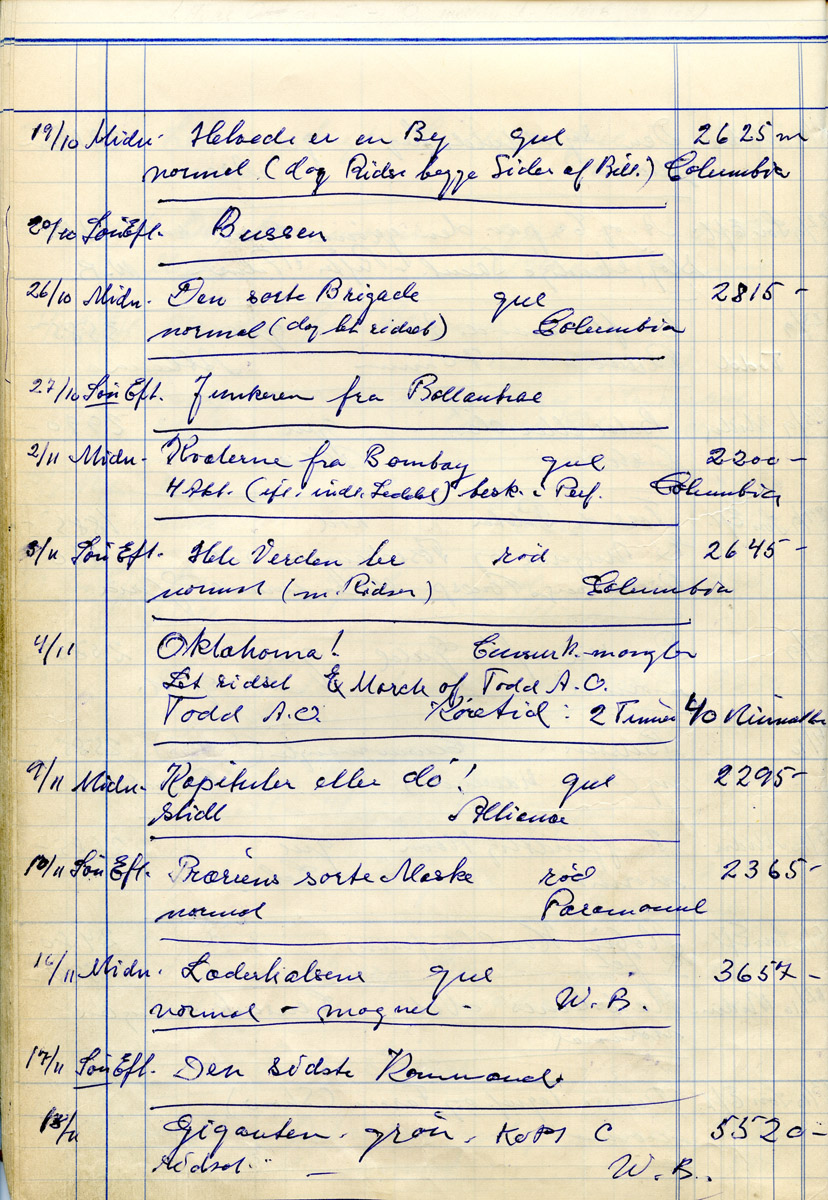 19/10 Midn. Helvede er en By gul 2625 m
normal (dog Ridse begge Sider af Bill.) Columbia
20/10 Søn Eft. Bussen
26/10 Midn. Den sorte Brigade gul 2815 -
normal (dog let ridset) Columbia
27/10 Søn Eft. Junkeren fra
2/11 Midn. fra Bombay gul 2200 -
4 Akt. (eft. indl. Seddel) besk. i Perf. Columbia
3/11 Søn Eft. Hele Verden ler rød 2645 -
normal (m. Ridser) Columbia
4/11 Oklahoma! Censurk. mangler
Let ridset Ex March of Todd A.O.
Todd A.O. Køretid: 2 Timer 40 Minutter
9/11 Midn. Kapituler eller dö! gul 2295 -
slidt Alliance
10/11 Søn Eft. Præriens sorte Maske rød 2365 -
normal Paramount
16/11 Midn. Læderhalsene gul 3657 -
normal - magnet - W. B.
17/11 Søn Eft. Den sidste Kommando
18/11 Giganten - grön - Kopi C 5520 -
ridset - W. B.